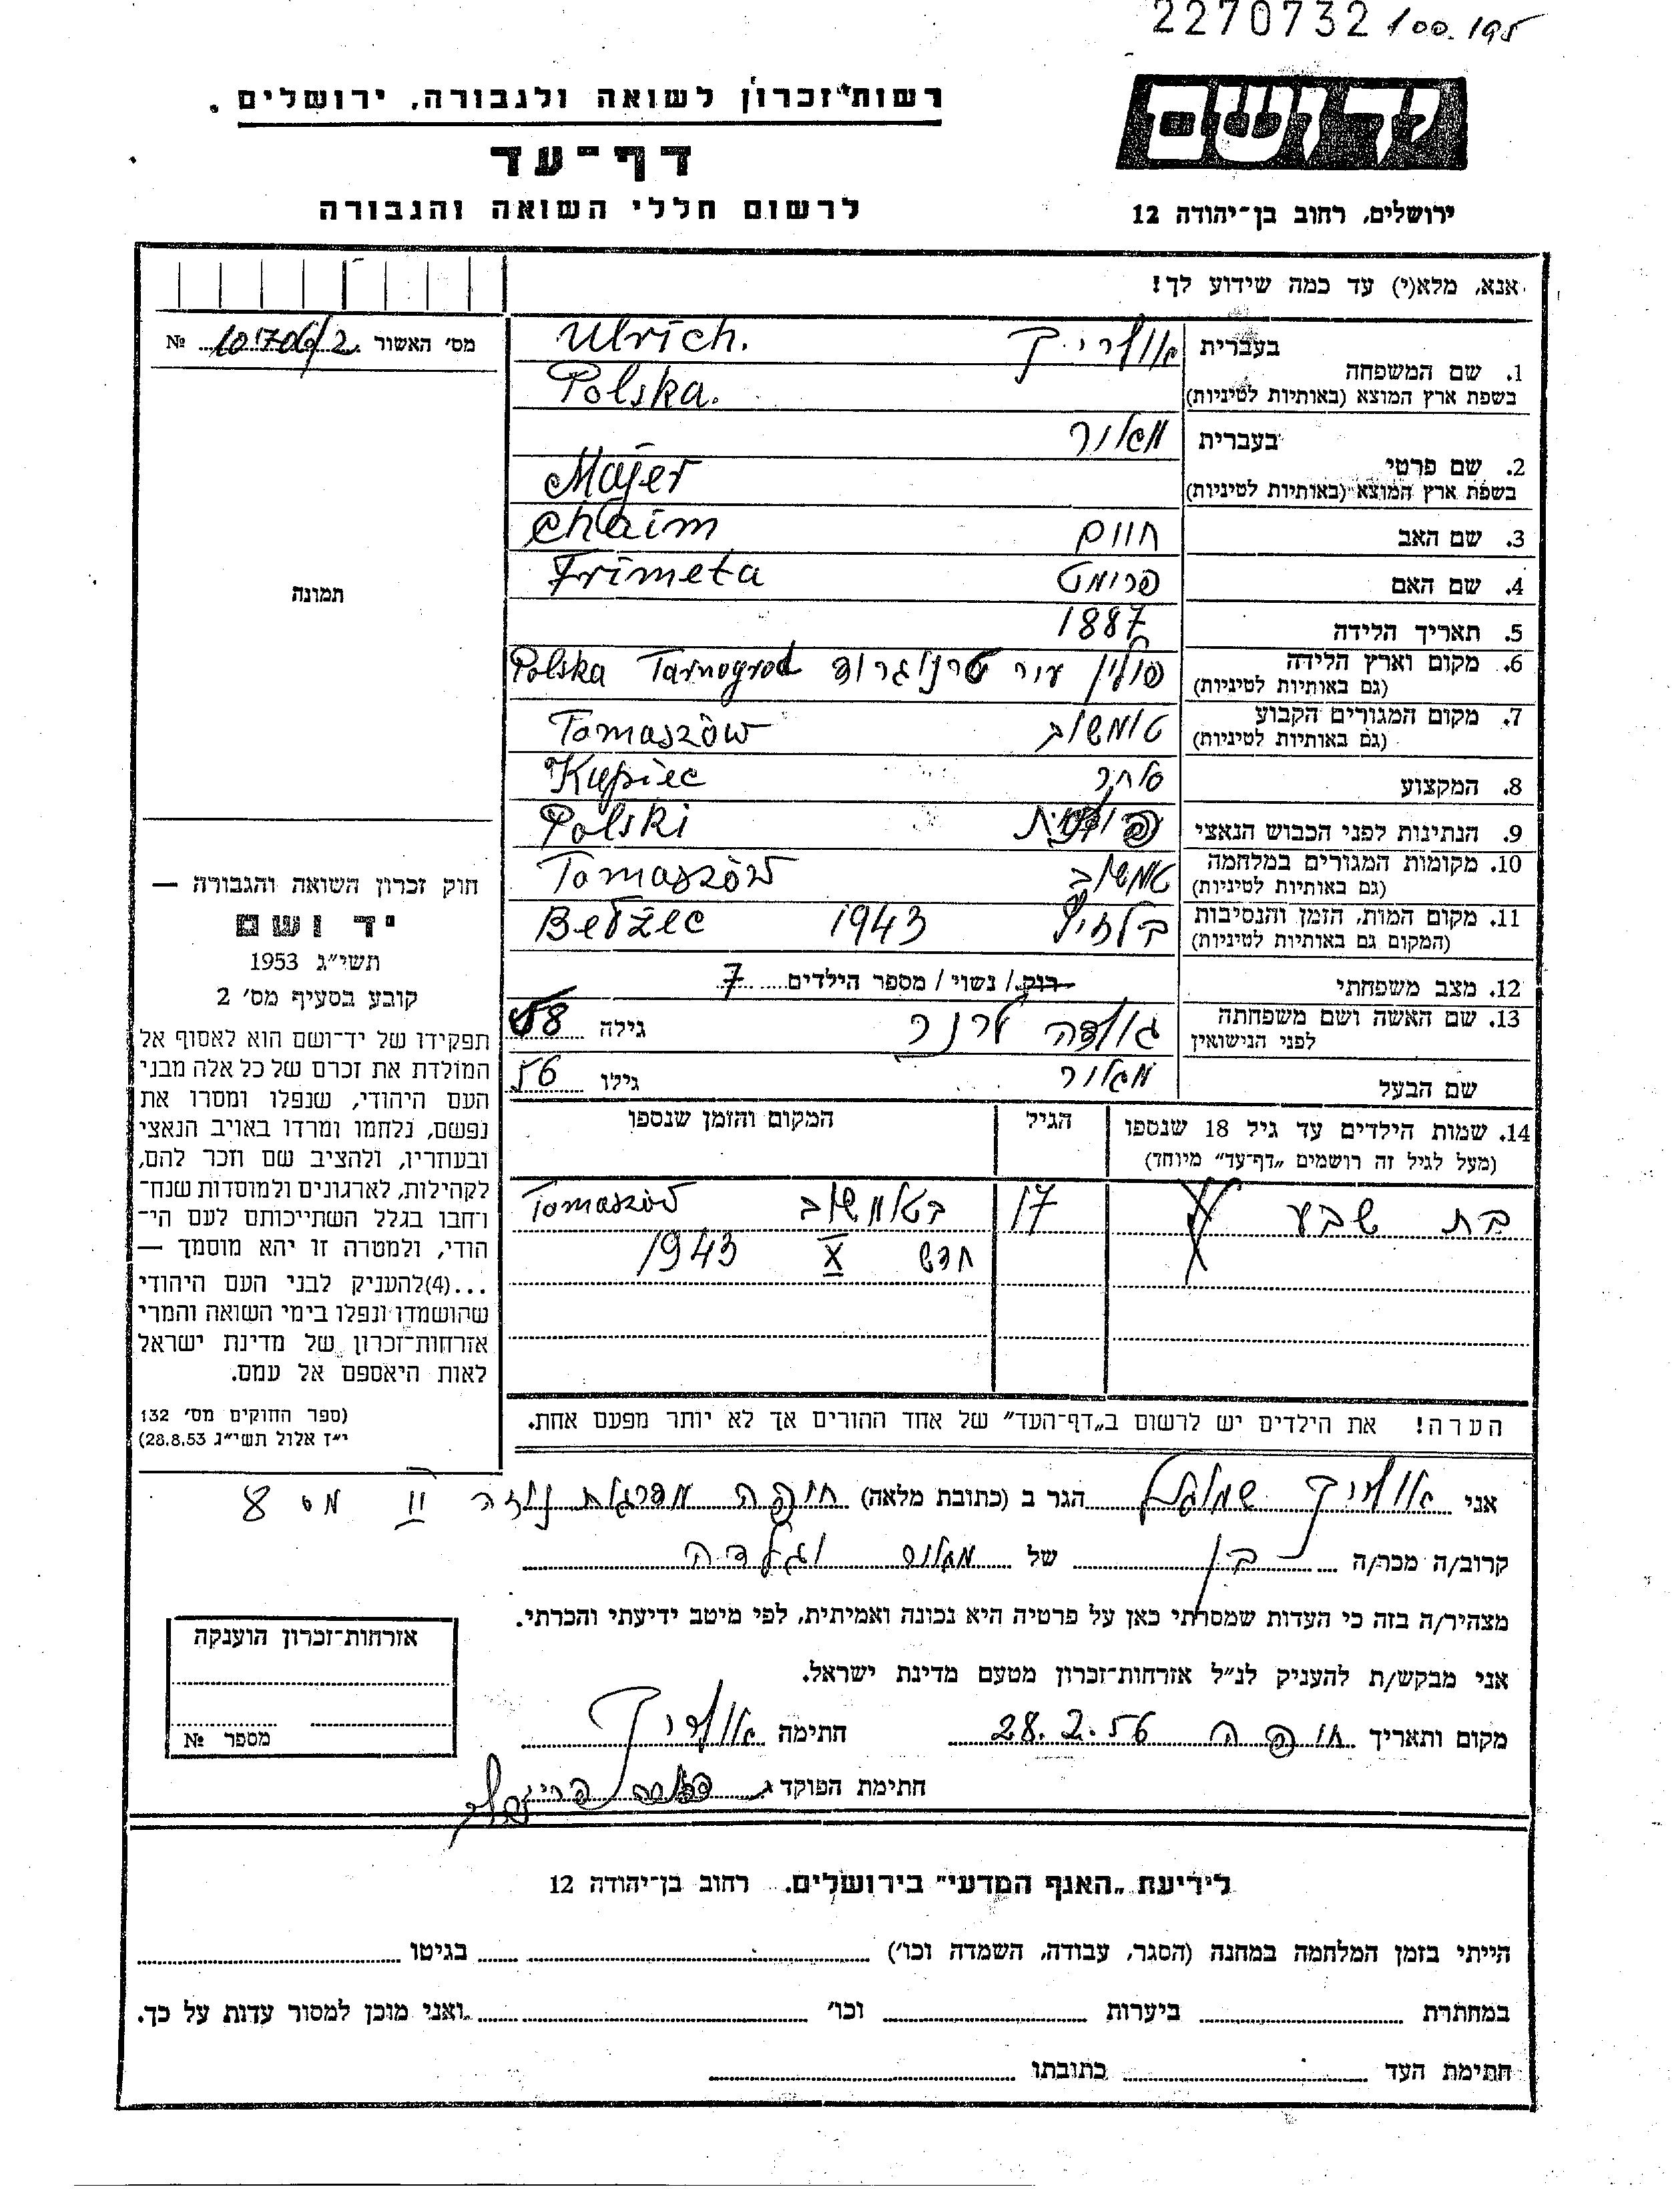 2270732 100.195
רשות־זכרון לשואה ולגבורה, ירושלים.
יד ושם
דף־עד
לרשום חללי השואה והגבורה
ירושלים, רחוב בן־יהודה 12
אנא, מלא(י) עד כמה שידוע לך!
מס׳ האשור 10706/2 №
בעברית אולריך Ulrich.
1. שם המשפחה
בשפת ארץ המוצא (באותיות לטיניות) Polska.
בעברית מאיר
2. שם פרטי
בשפת ארץ המוצא (באותיות לטיניות) Majer
3. שם האב חיים Chaim
4. שם האם פרימט Frimeta
5. תאריך הלידה 1887
6. מקום וארץ הלידה פולין עיר טרנוגרוד Polska Tarnogrod
(גם באותיות לטיניות)
7. מקום המגורים הקבוע טומשוב Tomaszòw
(גם באותיות לטיניות)
8. המקצוע סוחר Kupiec
9. הנתינות לפני הכבוש הנאצי פולנית Polski
10. מקומות המגורים במלחמה טומשוב Tomaszòw
(גם באותיות לטיניות)
11. מקום המות, הזמן והנסיבות 1943 Bełżec
(המקום גם באותיות לטיניות)
12. מצב משפחתי רוק/ נשוי / מספר הילדים 7
13. שם האשה ושם משפחתה גולדה לרנר גילה 58
לפני הנישואין
שם הבעל מאיר גילו 56
14. שמות הילדים עד גיל 18 שנספו הגיל המקום והזמן שנספו
(מעל לגיל זה רושמים „דף־עד״ מיוחד)
בת שבע 17 בטומשוב Tomaszòw
חדש X 1943
הערה! את הילדים יש לרשום ב„דף־העד״ של אחד ההורים אך לא יותר מפעם אחת.
תמונה
חוק זכרון השואה והגבורה —
יד ושם
תשי״ג 1953
קובע בסעיף מס׳ 2
תפקידו של יד־ושם הוא לאסוף אל
המולדת את זכרם של כל אלה מבני
העם היהודי, שנפלו ומסרו את
נפשם, נלחמו ומרדו באויב הנאצי
ובעוזריו, ולהציב שם וזכר להם,
לקהילות, לארגונים ולמוסדות שנח־
רחבו בגלל השתייכותם לעם הי־
הודי, ולמטרה זו יהא מוסמך —
...(4)להעניק לבני העם היהודי
שהושמדו ונפלו בימי השואה והמרי
אזרחות־זכרון של מדינת ישראל
לאות היאספם אל עמם.
(ספר החוקים מס׳ 132
י״ז אלול תשי״ג 28.8.53)
אני אולריך שמואל הגר ב (כתובת מלאה) חיפה מדרגות II מס 8
קרוב/ה מכר/ה בן של מאיר וגולדה
מצהיר/ה בזה כי העדות שמסרתי כאן על פרטיה היא נכונה ואמיתית, לפי מיטב ידיעתי והכרתי.
אני מבקש/ת להעניק לנ״ל אזרחות־זכרון מטעם מדינת ישראל.
מקום ותאריך חיפה 28.2.56 חתימה אולריך
חתימת הפוקד
אזרחות־זכרון הוענקה
מספר №
לידיעת „האגף המדעי״ בירושלים. רחוב בן־יהודה 12
הייתי בזמן המלחמה במחנה (הסגר, עבודה, השמדה וכו׳) בגיטו
במחתרת ביערות וכו׳ ואני מוכן למסור עדות על כך.
חתימת העד כתובתו